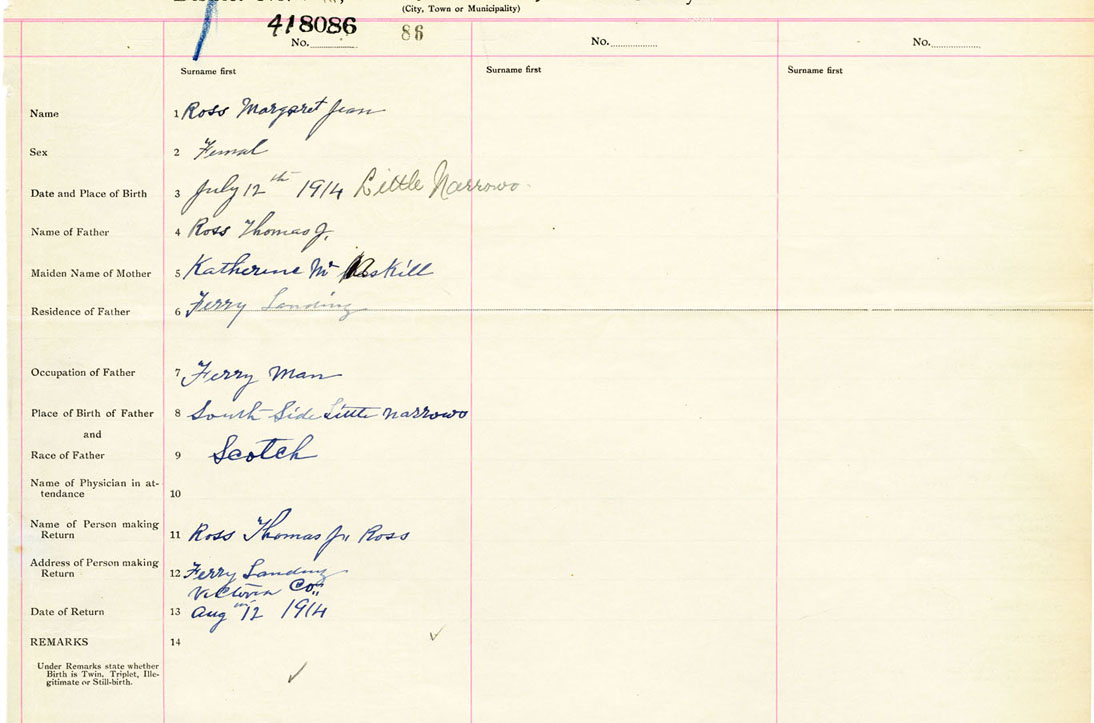 (City, Town or Municipality)
418086
No. 86
No.
No.
Surname first
Surname first
Surname first
Name 1 Ross Margaret Jean
Sex 2 Femal
Date and Place of Birth 3 July 12th 1914 Little Narrows
Name of Father 4 Ross Thomas J.
Maiden Name of Mother 5 Katherine Mc Askill
Residence of Father 6 Ferry Landing
Occupation of Father 7 Ferry Man
Place of Birth of Father 8 South Side Little Narrows
and
Race of Father 9 Scotch
Name of Physician in at-
tendance 10
Name of Person making
Return 11 Ross Thomas J. Ross
Address of Person making
Return 12 Ferry Landing
Victoria Co.
Date of Return 13 Aug 12 1914
REMARKS 14
Under Remarks state whether
Birth is Twin, Triplet, Ille-
gitimate or Still-birth.